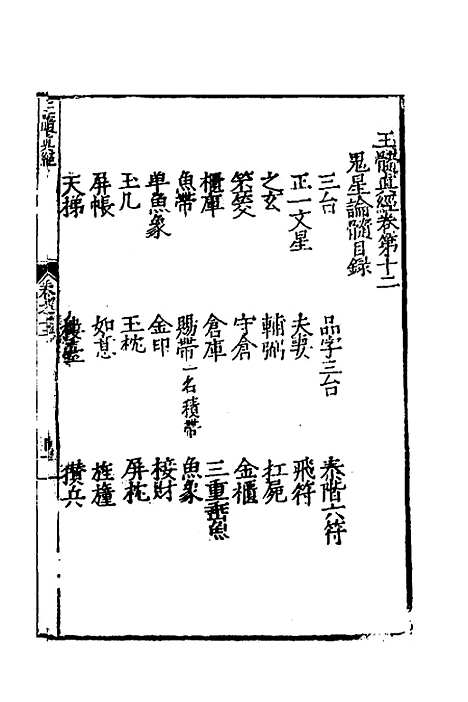 玉髓真經卷第十二
鬼星論髓目録
三台 品字三台 泰階六符
正一文星 夫妻 飛符
之玄 輔弼 扛屍
筞筊 守倉 金櫃
櫃庫 倉庫 三重垂魚
魚帶 賜帶一名積帶 魚象
單魚象 金印 接財
玉几 玉枕 屏枕
屏帳 如意 旌幢
天梯 攢兵